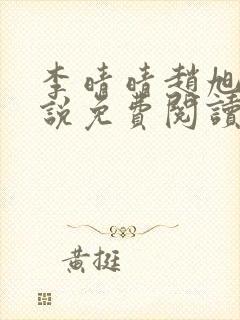 李晴晴趙旭
說免費閱讀
黃挺